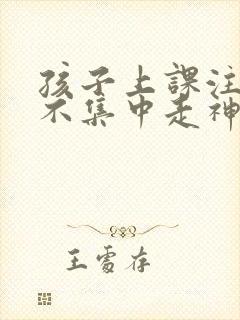 孩子上課注
不集中走神
王雪存